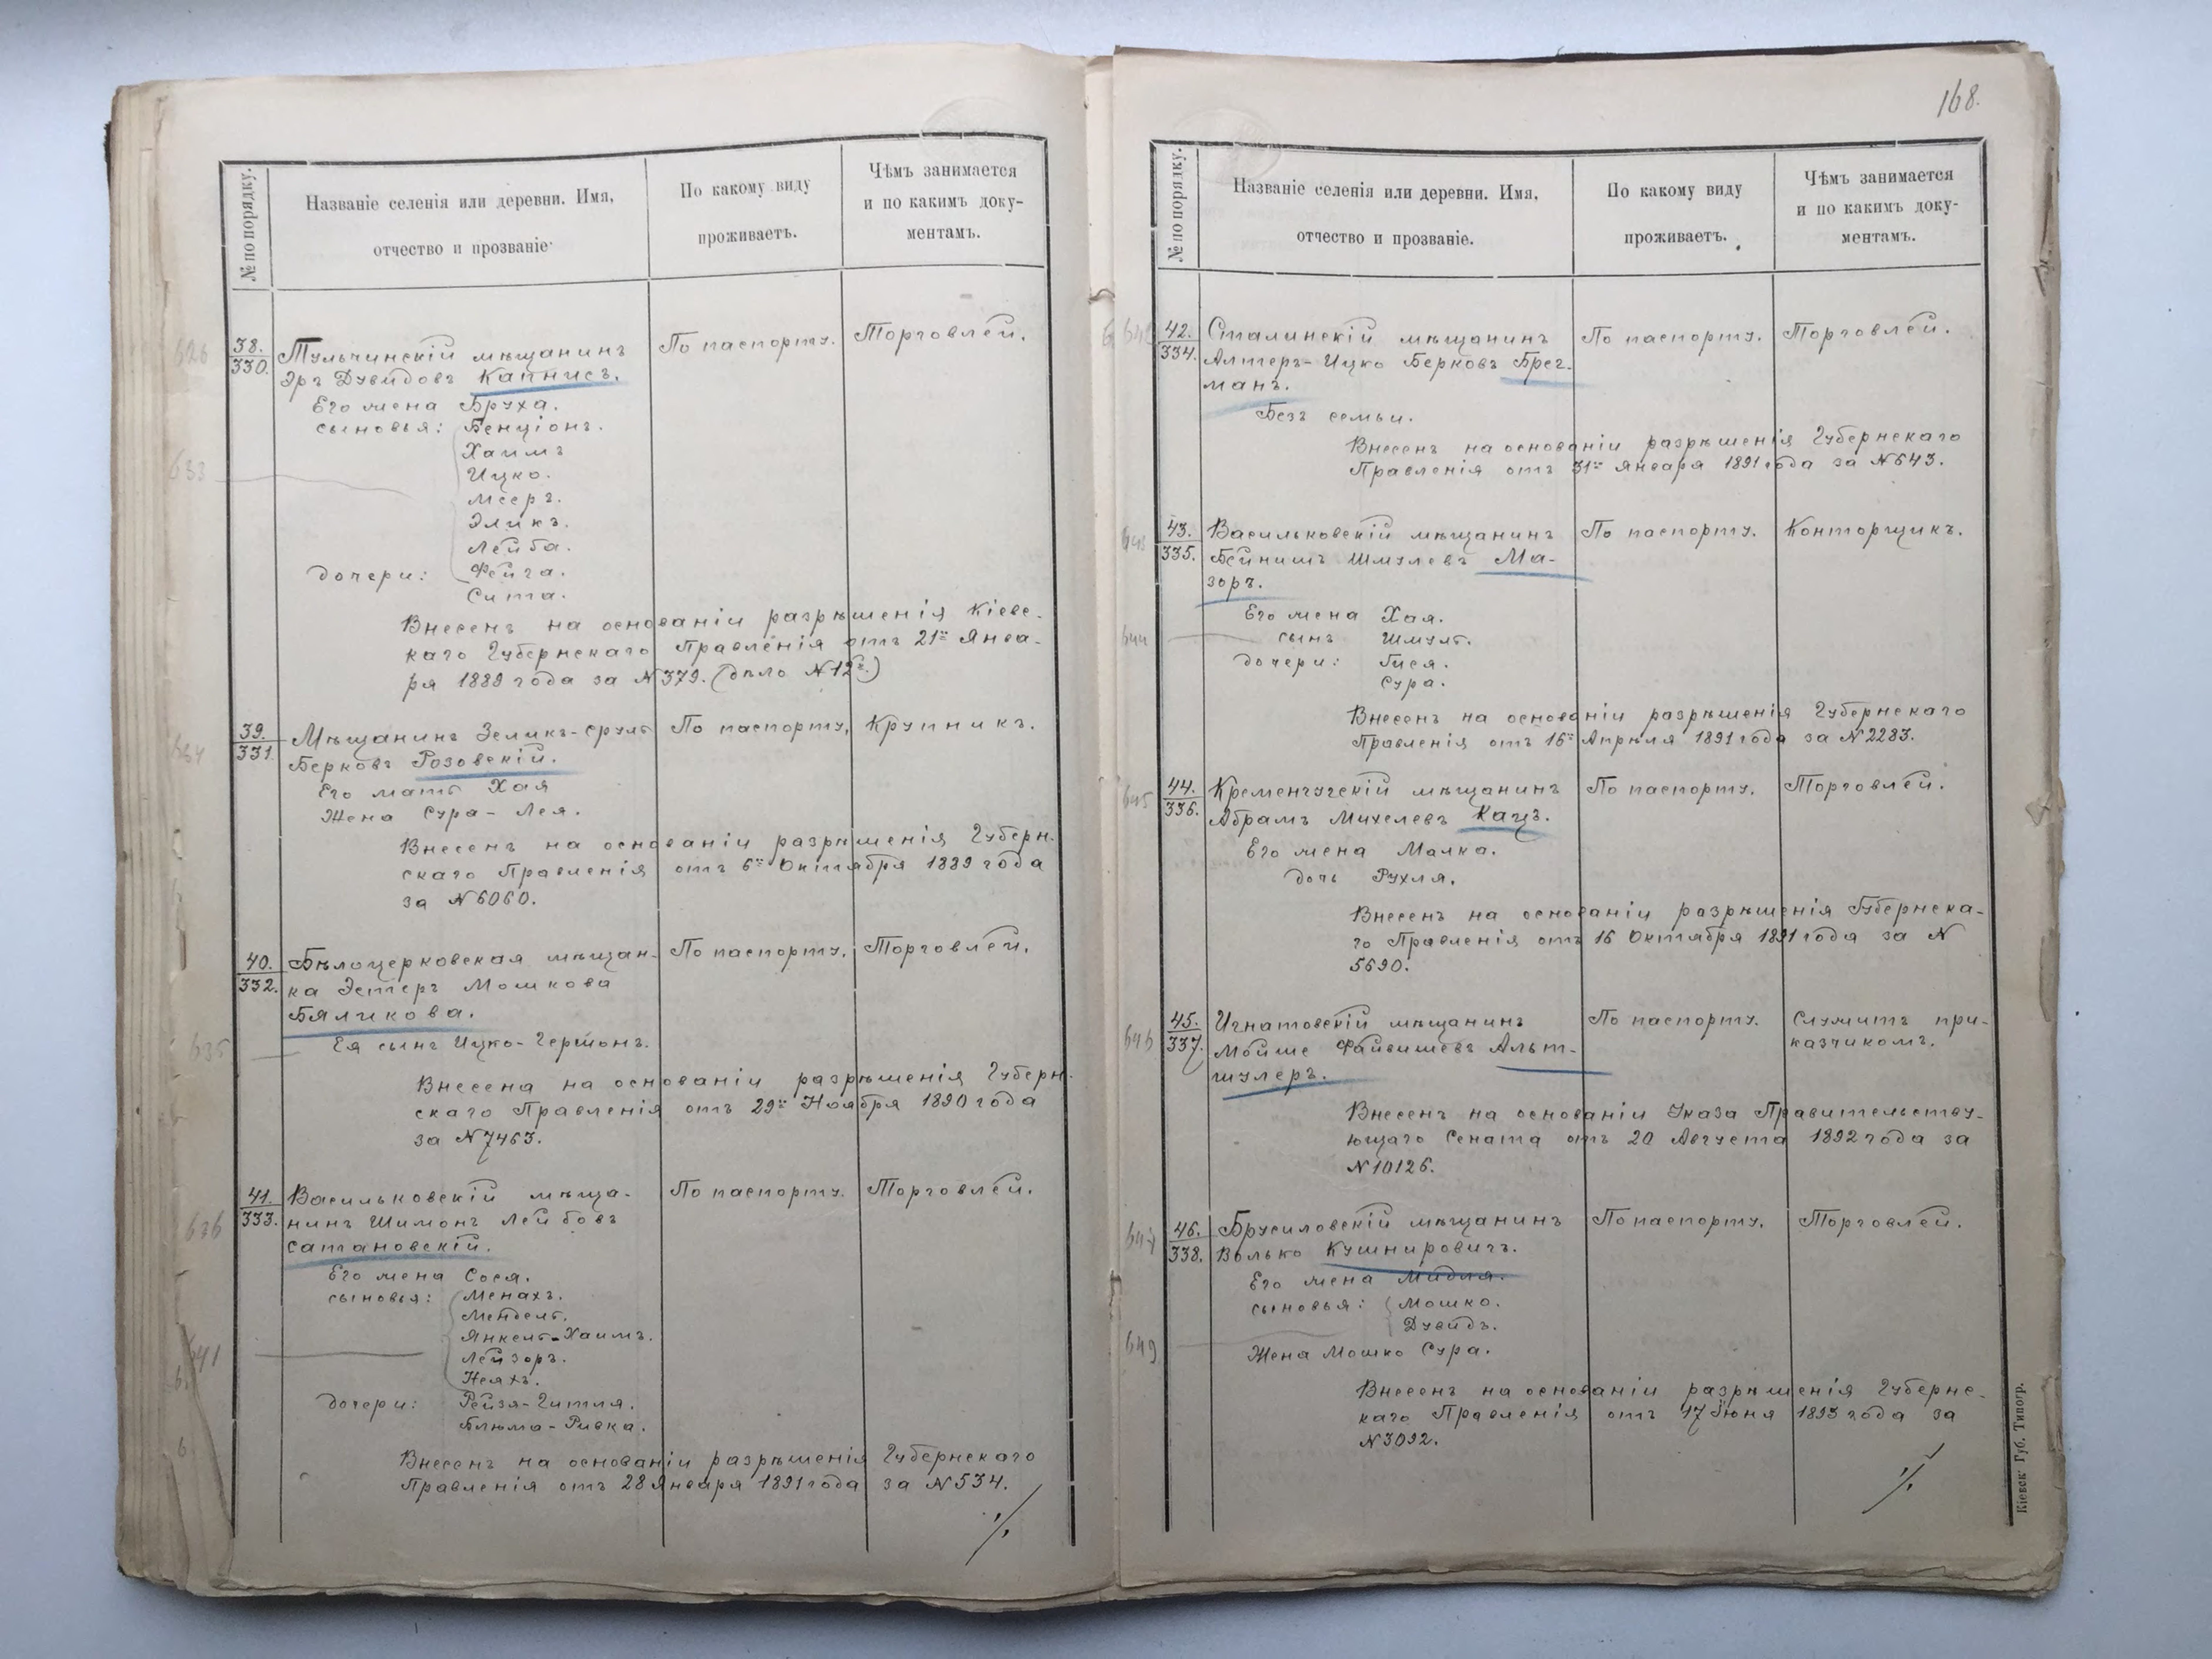 № по порядку.
Названіе селенія или деревни. Имя,
отчество и прозваніе
По какому виду
проживаетъ.
Чѣмъ занимается
и по какимъ доку-
ментамъ.
38.
330.
Тульчинскій мѣщанинъ
Эръ Дувидовъ Капнисъ.
По паспорту.
Торговлей.
Его жена Бруха.
сыновья: Бенціонъ.
Хаимъ
Ицко.
Мееръ.
Эликъ.
Лейба.
дочери: Фейга.
Сита.
Внесенъ на основаніи разрѣшенія Кіевс-
каго Губернскаго Правленія отъ 21го Янва-
ря 1889 года за №379. (дѣло №12)
39.
331.
Мѣщанинъ Зеликъ-Сруль
Берковъ Розовскій.
По паспорту,
Крупникъ.
Его мать Хая
Жена Сура-Лея.
Внесенъ на основаніи разрѣшенія Губерн-
скаго Правленія отъ 6го Октября 1889 года
за №6060.
40.
332.
Бѣлоцерковская мѣщан-
ка Эстеръ Мошкова
Бяликова.
По паспорту.
Торговлей.
Ея сынъ Ицко-Гершонъ.
635
Внесена на основаніи разрѣшенія Губерн-
скаго Правленія отъ 29го Ноября 1890 года
за №7463.
41.
333.
Васильковскій мѣща-
нинъ Шимонъ Лейбовъ
Сатановскій.
По паспорту.
Торговлей.
636
Его жена Сося.
сыновья: Менахъ.
Мендель.
Янкель-Хаимъ.
Лейзоръ.
Неяхъ.
641
дочери: Рейзя-Гитля.
Блюма-Ривка.
Внесенъ на основаніи разрѣшенія Губернскаго
Правленія отъ 28 Января 1891 года за №534.
168.
№ по порядку.
Названіе селенія или деревни. Имя,
отчество и прозваніе.
По какому виду
проживаетъ.
Чѣмъ занимается
и по какимъ доку-
ментамъ.
42.
334.
Сталинскій мѣщанинъ
Алтеръ-Ицко Берковъ Брег-
манъ.
По паспорту.
Торговлей.
Безъ семьи.
Внесенъ на основаніи разрѣшенія Губернскаго
Правленія отъ 31го Января 1891 года за №643.
43.
335.
Васильковскій мѣщанинъ
Бейнишъ Шмулевъ Ма-
зоръ.
По паспорту.
Конторщикъ.
Его жена Хая.
сынъ Шмуль.
644
дочери: Гися.
Сура.
Внесенъ на основаніи разрѣшенія Губернскаго
Правленія отъ 16го Апрѣля 1891 года за №2283.
44.
336.
645
Кременчугскій мѣщанинъ
Абрамъ Михелевъ Кацъ.
По паспорту.
Торговлей.
Его жена Малка.
дочь Рухля.
Внесенъ на основаніи разрѣшенія Губернска-
го Правленія отъ 16 Октября 1891 года за №
5690.
45.
337.
Игнатовскій мѣщанинъ
Мойше Файвишевъ Альт-
шулеръ.
По паспорту.
Служитъ при-
казчикомъ.
Внесенъ на основаніи Указа Правительству-
ющаго Сената отъ 20 Августа 1892 года за
№10126.
46.
338.
Брусиловскій мѣщанинъ
Волько Кушнировичъ.
По паспорту.
Торговлей.
Его жена Мидля.
сыновья: Мошко.
Дувидъ.
649
Жена Мошко Сура.
Внесенъ на основаніи разрѣшенія Губернс-
каго Правленія отъ 17 Іюня 1893 года за
№3092.
Кіевск. Губ. Типогр.